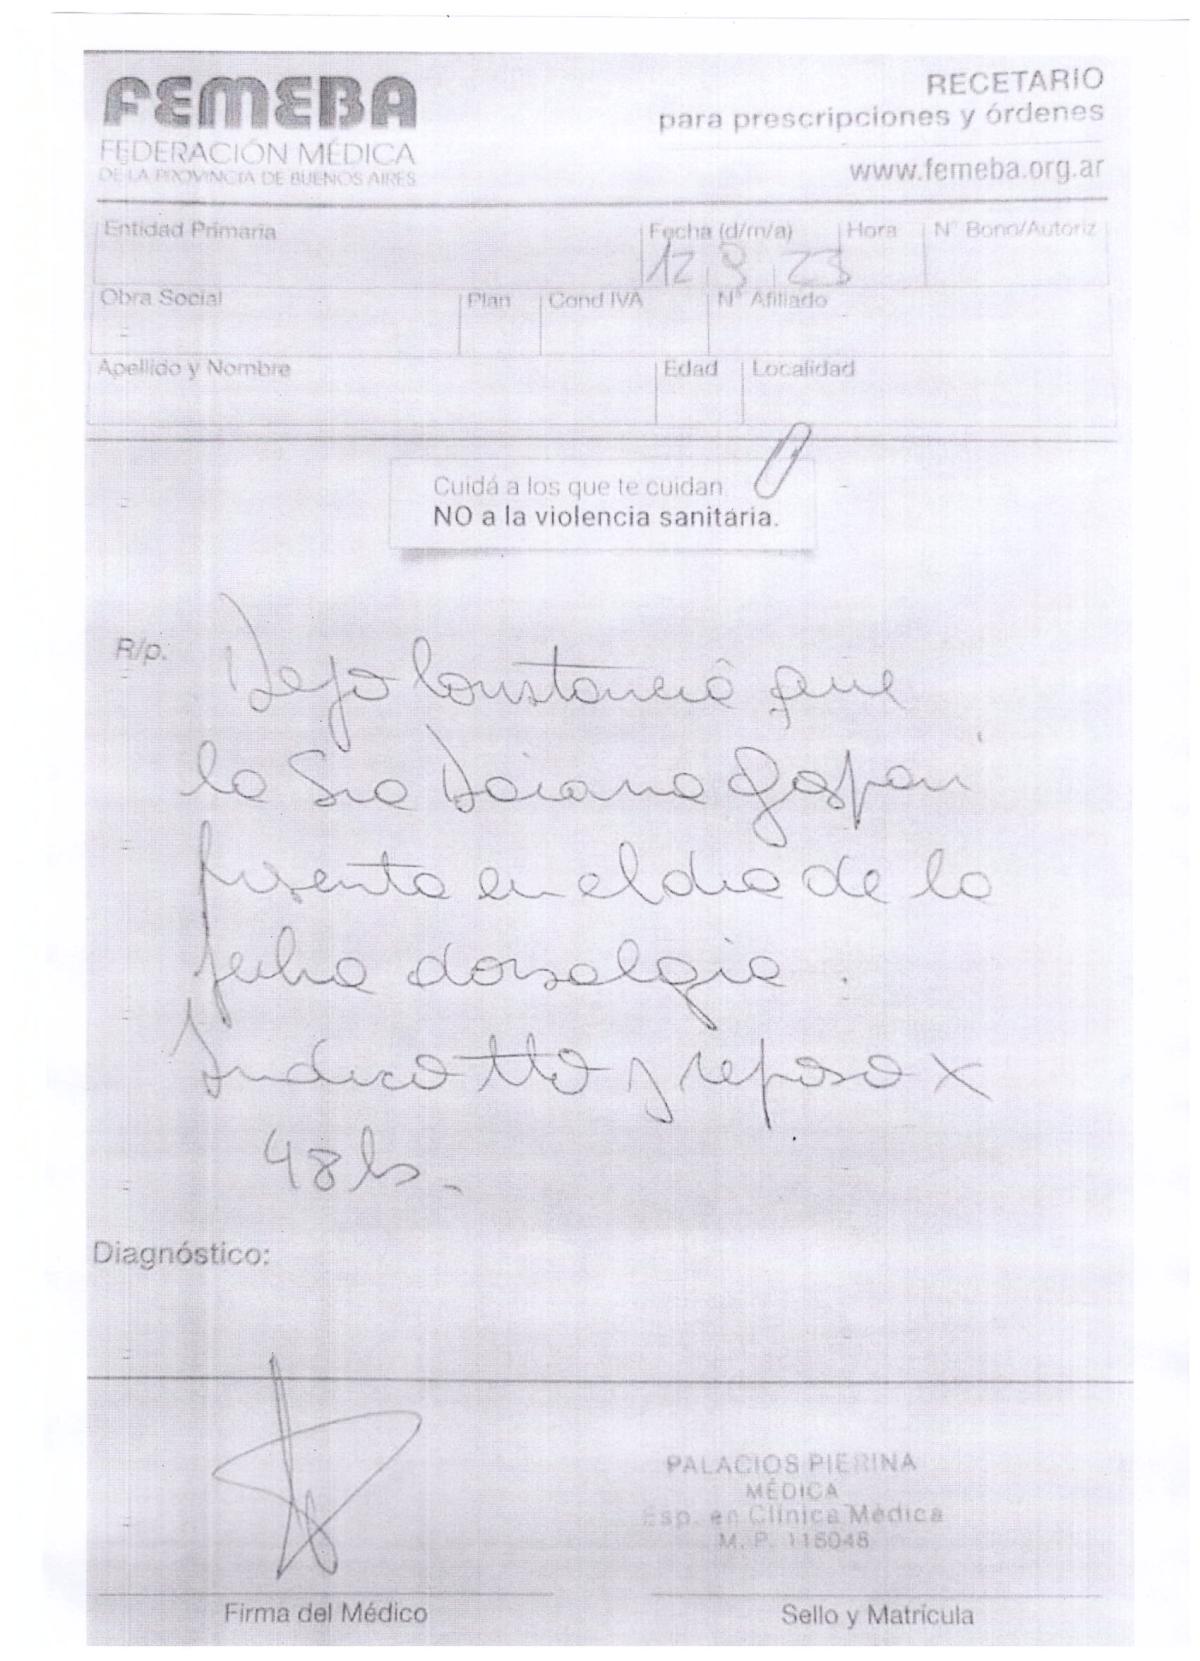 FEMEBA
FEDERACIÓN MÉDICA
DE LA PROVINCIA DE BUENOS AIRES
RECETARIO
para prescripciones y órdenes
www.femeba.org.ar
Entidad Primaria Fecha (d/m/a) Hora N° Bono/Autoriz
12 9 23
Obra Social Plan Cond IVA N° Afiliado
Apellido y Nombre Edad Localidad
Cuidá a los que te cuidan
NO a la violencia sanitaria.
R/p. Dejo Constancia que
la Sra Daiana Gaspari
presenta en el dia de la
fecha dorsalgia.
Indico tto y reposo x
48 hs.
Diagnóstico:
PALACIOS PIERINA
MÉDICA
Esp. en Clínica Médica
M. P. 115048
Firma del Médico Sello y Matrícula